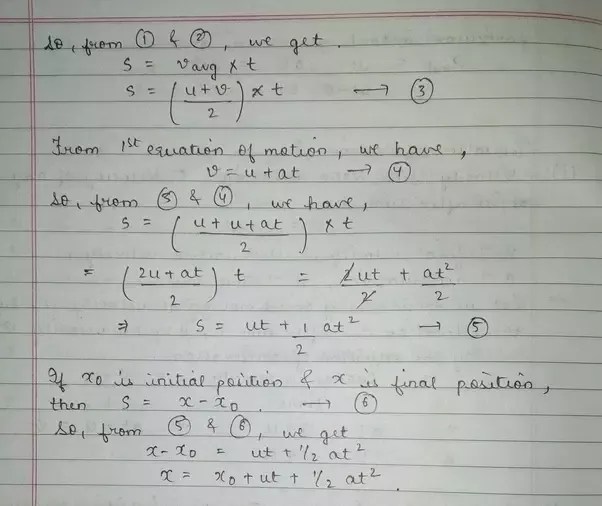 So, from ① & ②, we get.
s = vavg × t
s = (u+v/2) × t → ③
From 1st equation of motion, we have,
v = u + at → ④
So, from ③ & ④, we have,
s = (u + u + at/2) × t
= (2u + at/2) t = 2ut/2 + at²/2
⇒ s = ut + 1/2 at² → ⑤
If x0 is initial position & x is final position,
then s = x - x0. → ⑥
So, from ⑤ & ⑥, we get
x - x0 = ut + 1/2 at²
x = x0 + ut + 1/2 at².